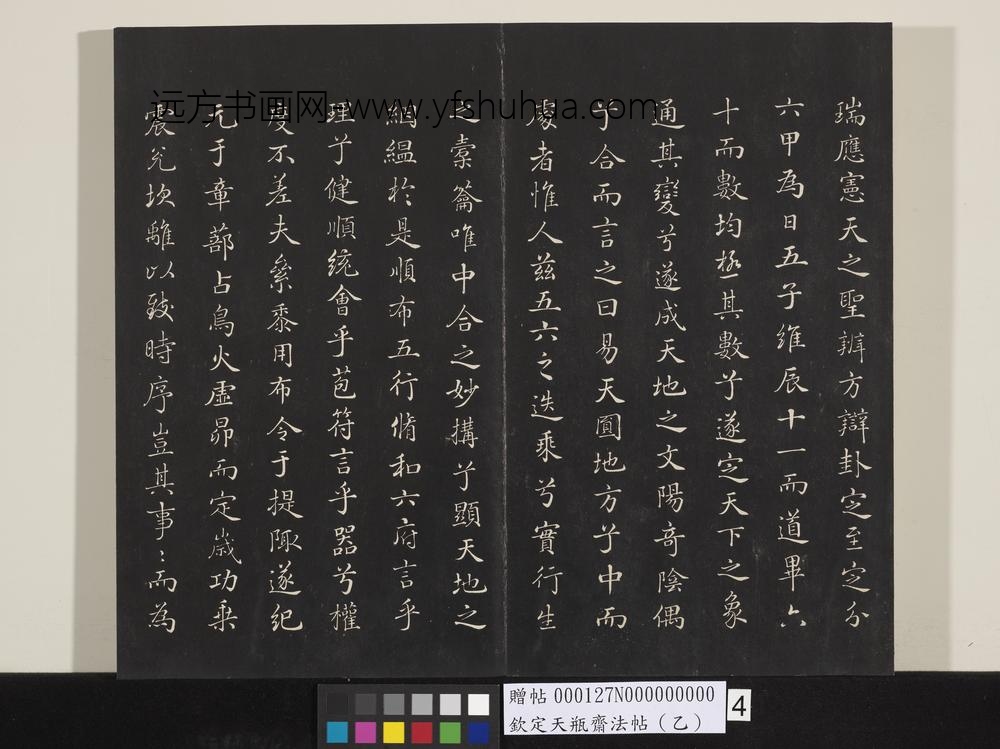 瑞應憲天之聖辨方辯卦定至定分
六甲為日五子維辰十一而道畢六
十而數均極其數兮遂定天下之象
通其變兮遂成天地之文陽奇陰偶
兮合而言之曰易天圓地方兮中而
處者惟人茲五六之迭乘兮實行生
之橐籥唯中合之妙搆兮顯天地之
絪縕於是順布五行脩和六府言乎
理兮健順統會乎苞符言乎器兮權
度不差夫絫黍用布令于提陬遂紀
元于章蔀占鳥火虛昴而定歲功乗
震兊坎離以致時序豈其事〻而為
远方书画网 www.yfshuhua.com
贈帖 000127N000000000
欽定天瓶齋法帖（乙）
4